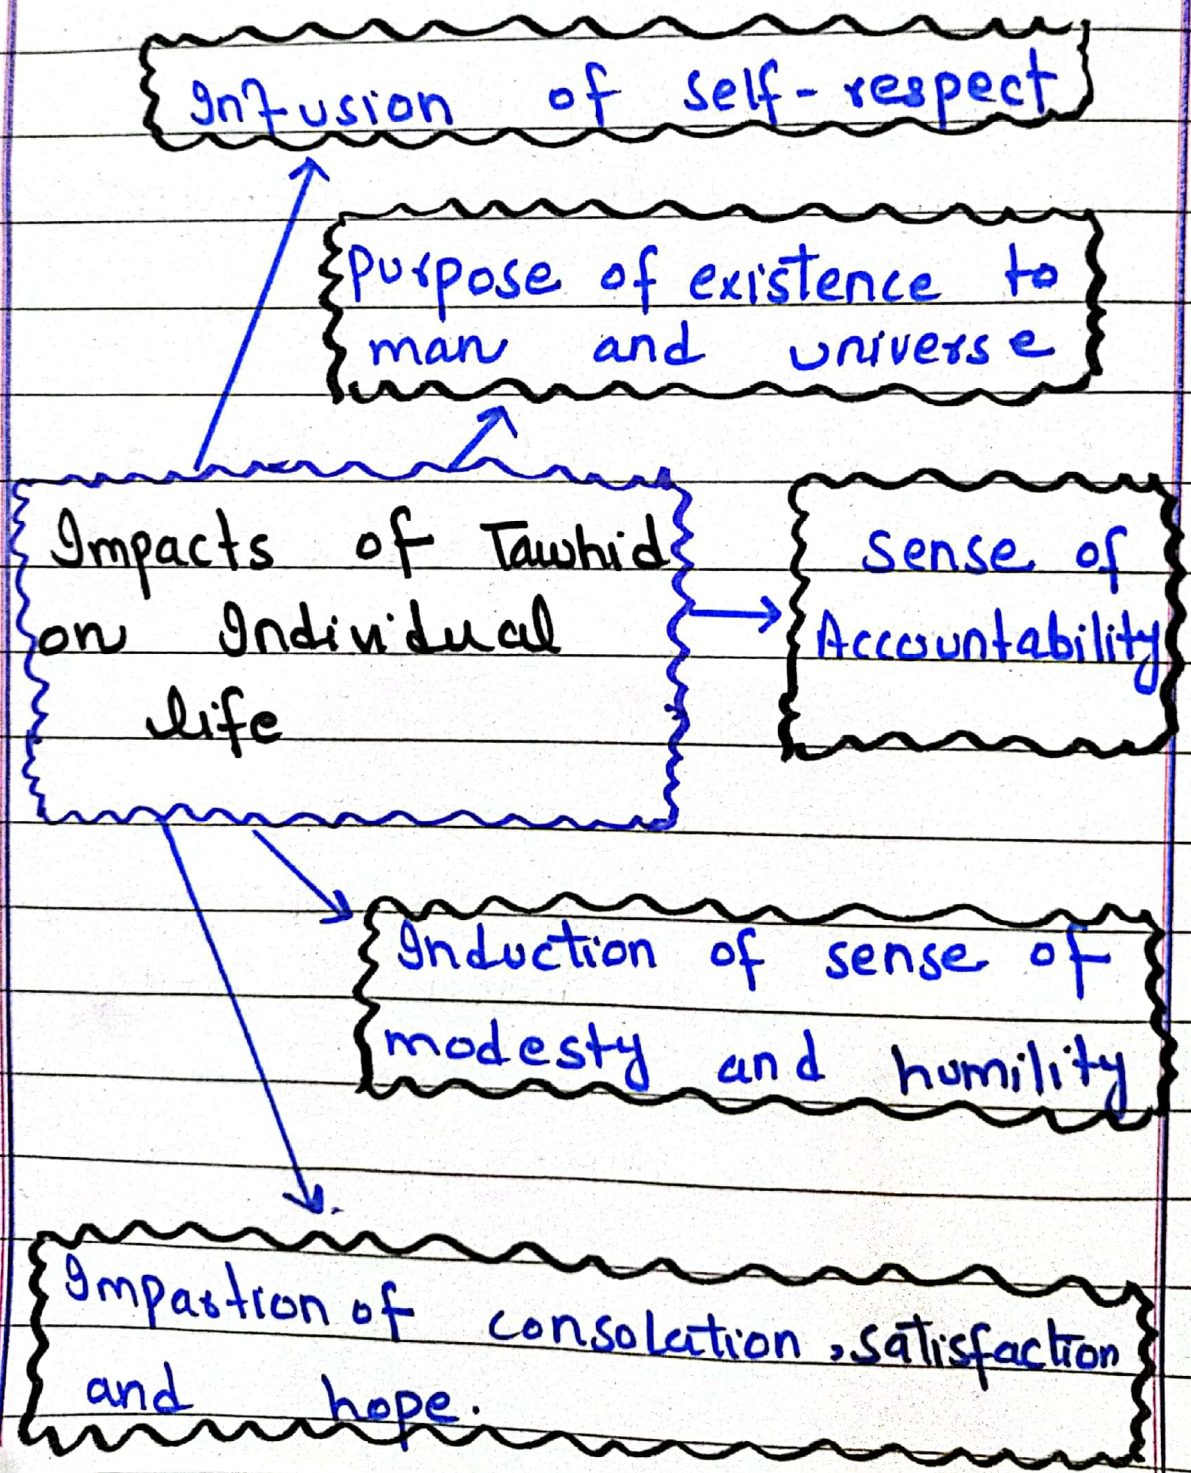 Infusion of self-respect
Purpose of existence to
man and universe
Impacts of Tawhid
on Individual
life
Sense of
Accountability
Induction of sense of
modesty and humility
Impartion of consolation, satisfaction
and hope.